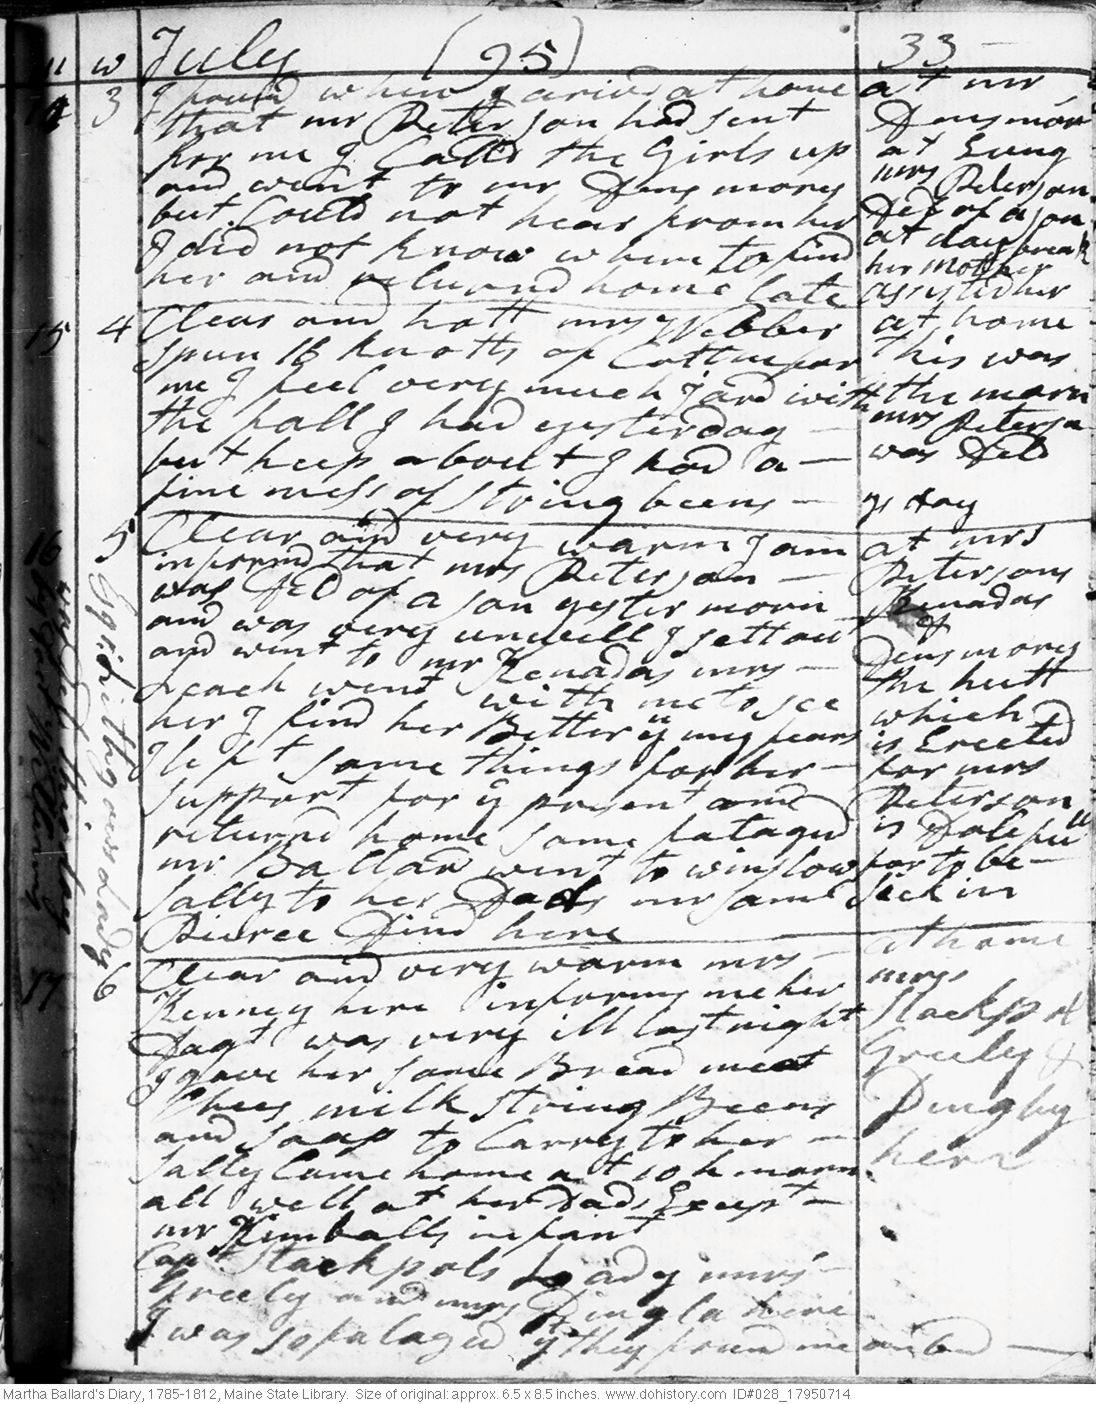 m w July (95) 33
14 3 I found when I arivd at home
that mr Peterson had sent
for me I Calld the Girls up
and went to mr Densmores
but Could not hear from her
I did not know where to find
her and returnd home late
at mr
Densmors
at Evng
mrs Peterson
Del of a son
at day break
her Mother
assisted her
15 4 Clear and hott mrs Webber
spun 18 knotts of Cotten for
me I feel very much Jard with
the fall I had yesterday
but keep about I had a
fine mess of string beens
at home
this was
the morn
mrs Peterson
was Deld
ys Day
16 5 Clear and very warm I am
informd that mrs Peterson
was Del of a son yester morn
and was very unwell I sett out
and went to mr Kenadas mrs
went with me to see
her I find her Better yn my fears
I left some things for her
support for ye present and
returnd home some fatagud
mr Ballard went to winslow
Sally to her Dads mr Saml
Pierce Dind here
at mrs
Petersons
Kenadas
&
Densmores
the hutt
which
is Erected
for mrs
Peterson
is Dolefull
for to be
sick in
17 6 Clear and very warm mrs
Kenney here informs me her
Dagt was very ill last night
I gave her some Bread meat
Chees milk string Beens
and soap to Carry to her
Sally Came home at 10 h morn
all well at her Dads Except
mr Kimballs infant
Capt Stackpols Lady mrs
Greely and mrs Dingla here
I was so fatagud yt they found me on bed
at home
mrs
Stackpol
Greeley &
Dingley
here
Martha Ballard's Diary, 1785-1812, Maine State Library. Size of original: approx. 6.5 x 8.5 inches. www.dohistory.com ID#028_17950714